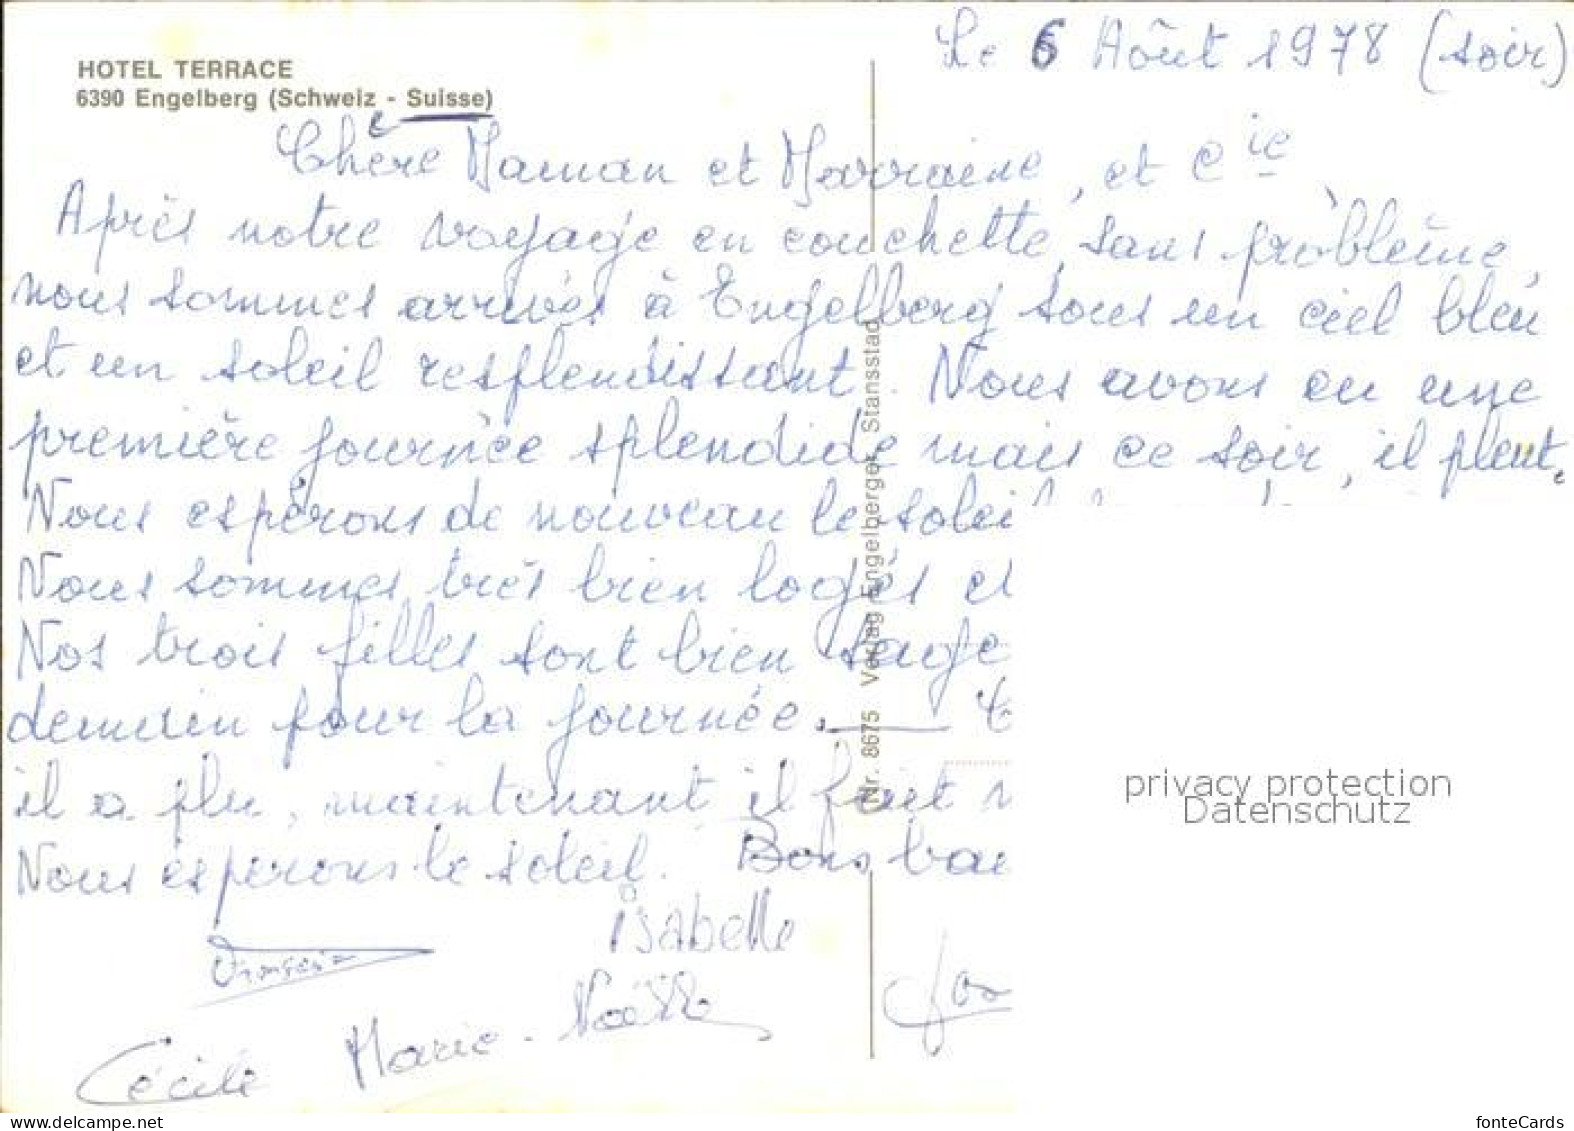 Le 6 Août 1978 (soir)
HOTEL TERRACE
6390 Engelberg (Schweiz - Suisse)
Chère Maman et Marraine, et Cie,
Après notre voyage en couchette, sans problème,
nous sommes arrivés à Engelberg sous un ciel bleu
et un soleil resplendissant. Nous avons eu une
première journée splendide mais ce soir, il pleut.
Nous espérons de nouveau le soleil
Nous sommes très bien logés et
Nos trois filles sont bien sage
demain pour la journée.
il a plu, maintenant il fait
Nous espérons le soleil. Bons bai
Isabelle
Marie-Noëlle
Cécile
Nr. 8675 Verlag Engelberger, Stansstad
privacy protection
Datenschutz
delcampe.net
fonteCards